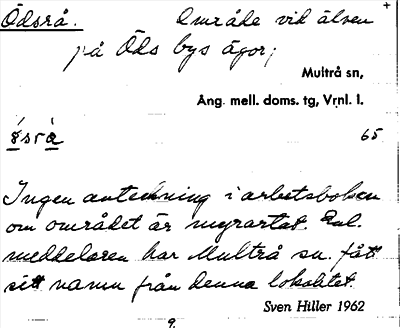 Ödsrå. Område vid älven +
på Öds bys ägor;
Multrå sn,
Ång. mell. doms. tg, Vrnl. l.
65
Ingen anteckning i arbetsboken
om området är myrartat. Enl.
meddelaren har Multrå sn. fått
sitt namn från denna lokalitet.
Sven Hiller 1962
9.